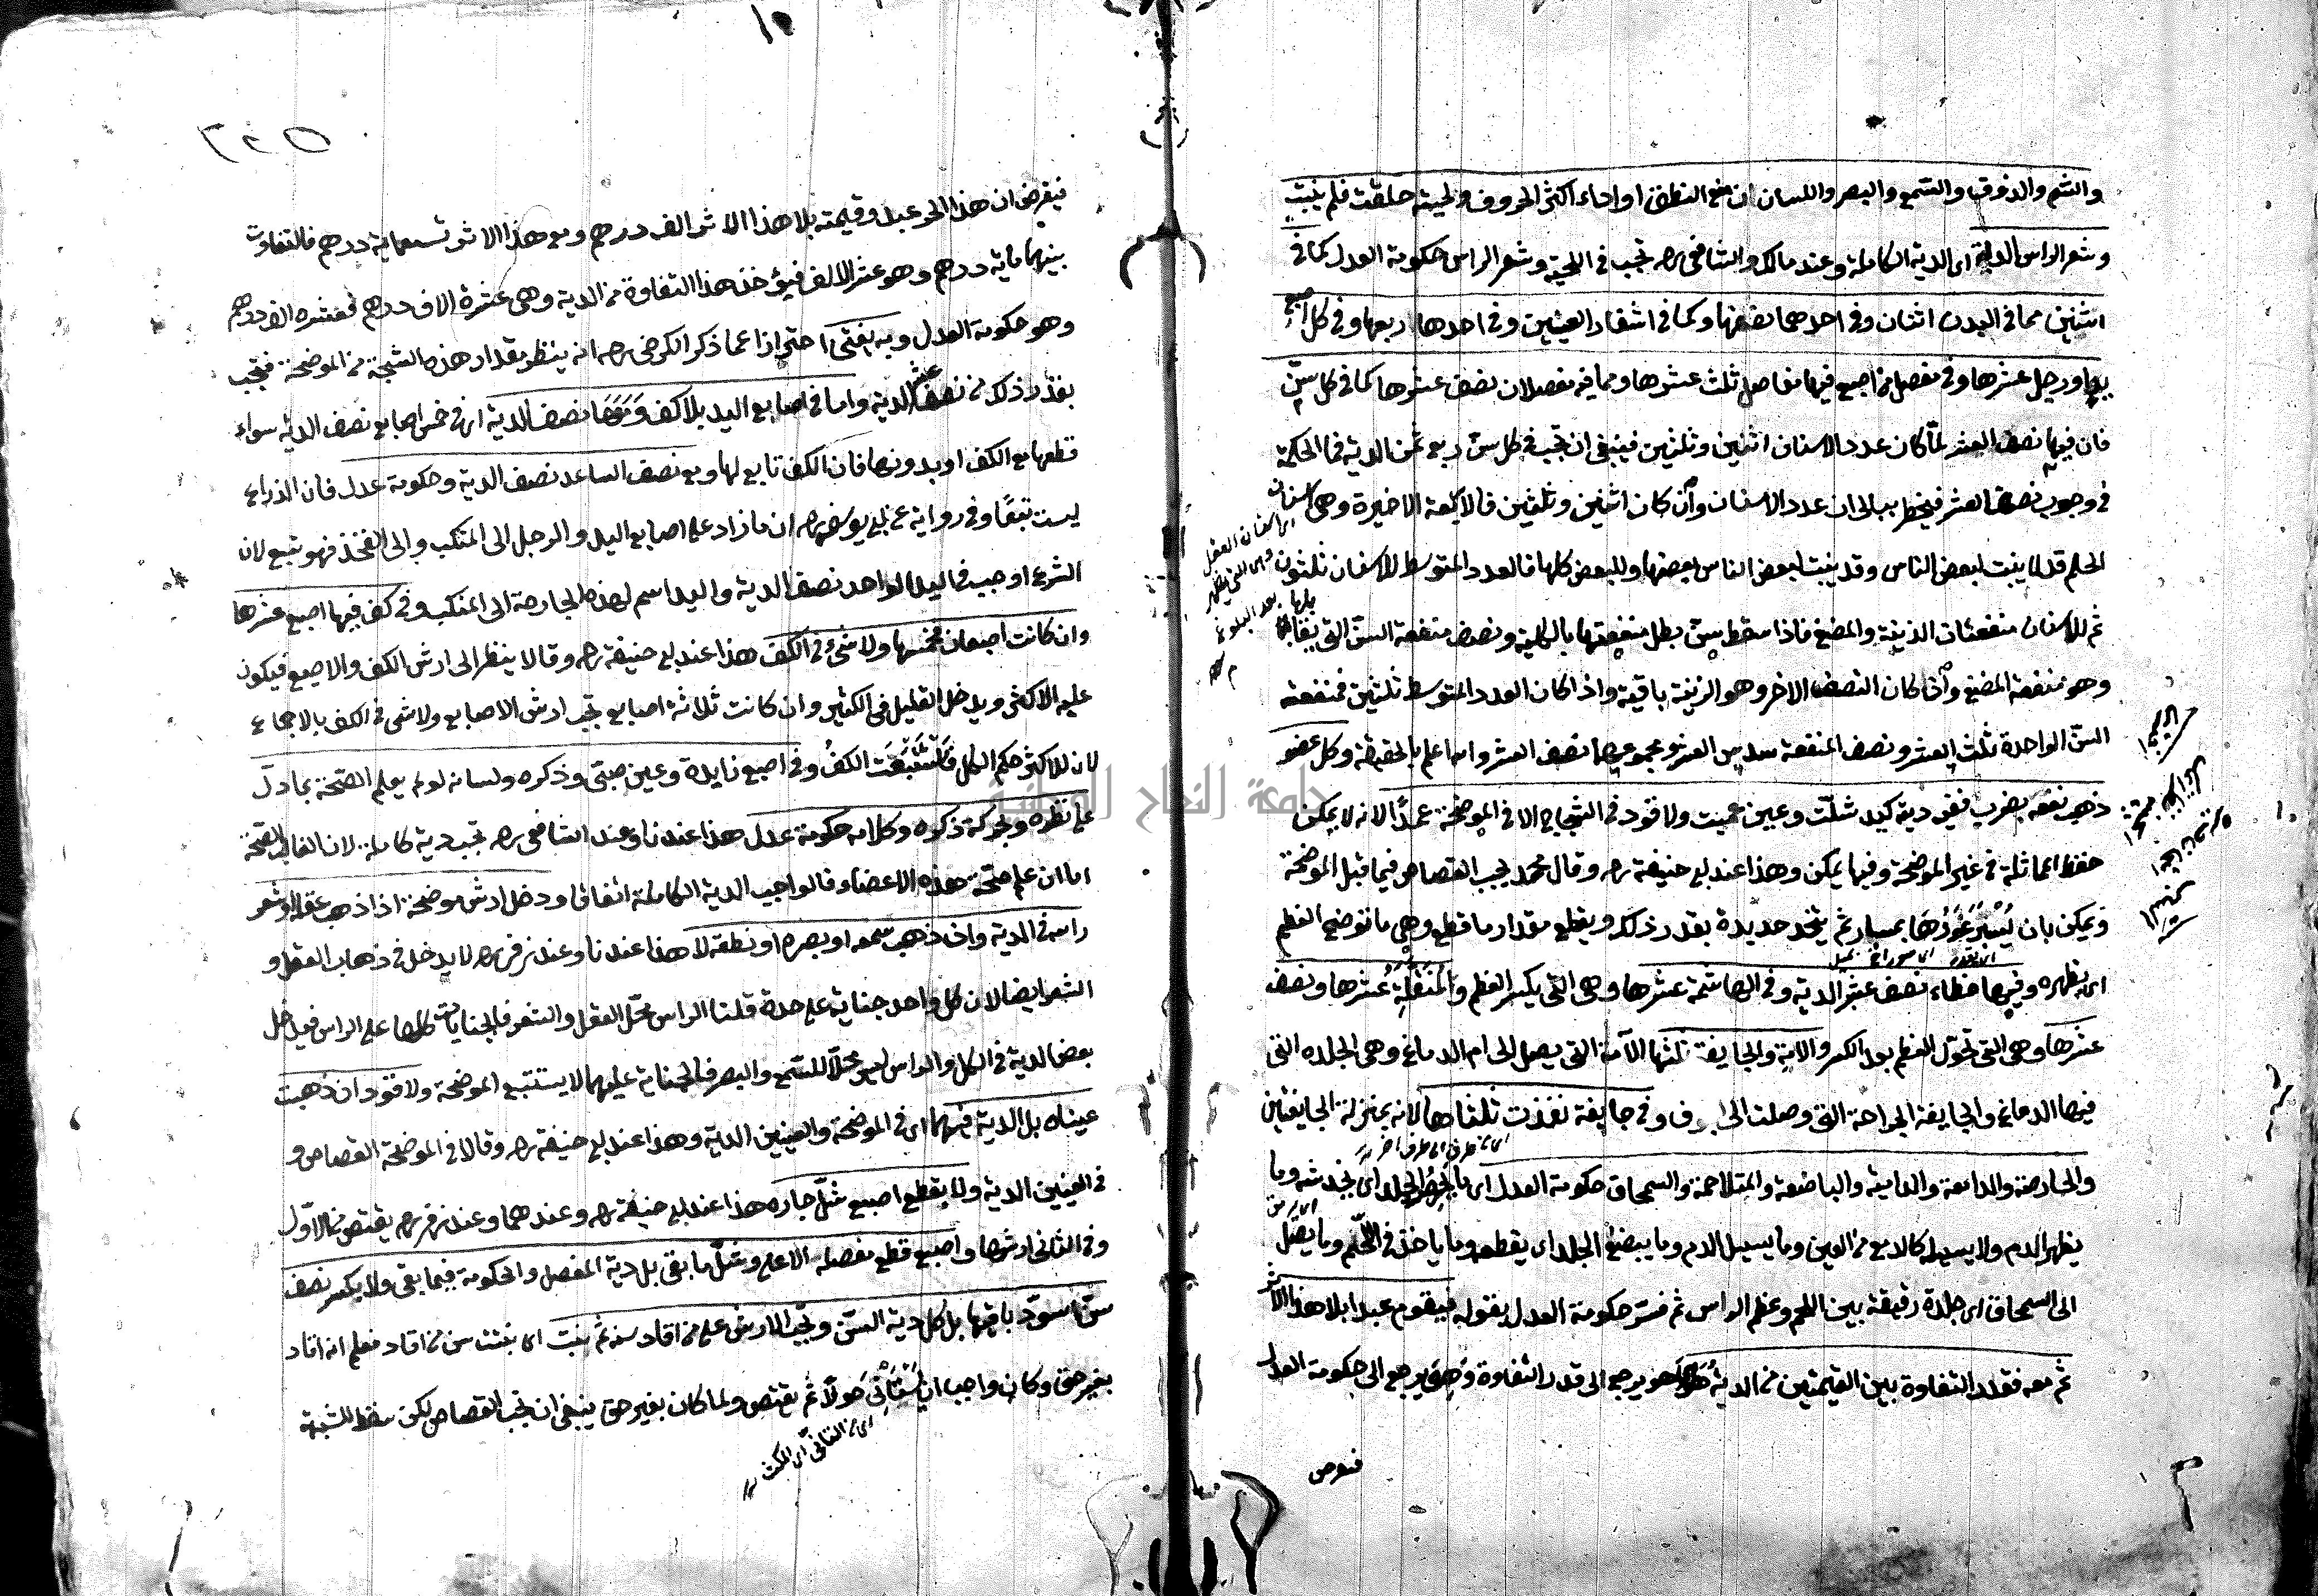 والشم والذوق والسمع والبصر واللسان ان منع النطق او اداء اكثر الحروف ولحيته حلقت فلم ينبت
وشعر الراس الدية اى الدية الكاملة وعند مالك والشافعى رحه تجب فى اللحية وشعر الراس حكومة العدل كما فى
اثنين مما فى البدن اثنان وفى احدهما نصفها وكما فى اشفار العينين وفى احدها ربعها وفى كل اصبع
يد او رجل عشرها وفى مفصل من اصبع فيها مفاصل ثلث عشرها ومما فيه مفصلان نصف عشرها كما فى كل سن
فان فيها نصف العشر لما كان عدد الاسنان اثنين وثلثين فينبغى ان تجب فى كل سن ربع ثمن الدية فما الحكمة
فى وجوب نصف العشر فيخطر ببالى ان عدد الاسنان وان كان اثنين وثلثين فالاربعة الاخيرة وهى اسنان
الحلم قد لا ينبت لبعض الناس وقد ينبت لبعض الناس بعضها وللبعض كلها فالعدد المتوسط للاسنان ثلثون
ثم للاسنان منفعتان الزينة والمضغ فاذا سقط سن بطل منفعتها بالكلية ونصف منفعة السن التى يقابلها
وهو منفعة المضغ وان كان النصف الاخر وهو الزينة باقية واذا كان العدد المتوسط ثلثين فمنفعة
السن الواحدة ثلث العشر ونصف المنفعة سدس العشر ومجموعهما نصف العشر والله اعلم بالحقيقة وكل عضو
ذهب نفعه بضرب ففيه دية كيد شلت وعين عميت ولا قود فى الشجاج الا فى الموضحة عمدا لانه لا يمكن
حفظ المماثلة فى غير الموضحة وفيها يمكن وهذا عند ابى حنيفة رحه وقال محمد يجب القصاص فيما قبل الموضحة
ويمكن بان يسبر غورها بمسبار ثم يتخذ حديدة بقدر ذلك ويقطع مقدار ما قطع وهى ما توضح العظم
اى تظهره وفيها خطاء نصف عشر الدية وفى الهاشمة عشرها وهى التى يكسر العظم والمنقلة عشرها ونصف
عشرها وهى التى تحول العظم بعد الكسر والآمة والجايفة ثلثها الآمة التى يصل الى ام الدماغ وهى الجلدة التى
فيها الدماغ والجايفة الجراحة التى وصلت الى الجوف وفى جايفة نفذت ثلثاها لانه بمنزلة الجايفتين
والحارصة والدامعة والدامية والباضعة والمتلاحمة والسمحاق حكومة العدل اى ما يحرص الجلد اى يخدشه وما
يظهر الدم ولا يسيله كالدمع من العين وما يسيل الدم وما يبضع الجلد اى يقطعه وما ياخذ فى اللحم وما يصل
الى السمحاق اى جلدة رقيقة بين اللحم وعظم الراس ثم فسر حكومة العدل بقوله فيقوم عبدا بلا هذا الاثر
ثم معه فقدر التفاوة بين القيمتين من الدية هو هى هو يرجع الى قدر التفاوة وهى يرجع الى حكومة العدل
فيفرض
٢٤٥
فيفرض ان هذا الحر عبد وقيمته بلا هذا الاثر الف درهم ومع هذا الاثر تسعماية درهم فالتفاوت
بينهما ماية درهم وهو عشر الالف فيؤخذ هذا التفاوة من الدية وهى عشرة الاف درهم فعشره الف درهم
وهو حكومة العدل وبه يفتى احترازا عما ذكر الكرخى رحه انه ينظر مقدار هذه الشجة من الموضحة فتجب
بقدر ذلك من نصف عشر الدية واما فى اصابع اليد بلا كف ومعها نصف الدية اى فى خمس اصابع نصف الدية سواء
قطعها مع الكف او بدونها فان الكف تابع لها ومع نصف الساعد نصف الدية وحكومة عدل فان الذراع
ليست تبعا وفى رواية عن ابى يوسف رحه ان ما زاد على اصابع اليد والرجل الى المنكب والى الفخذ فهو تبع لان
الشرع اوجب فى اليد الواحد نصف الدية واليد اسم لهذه الجارحة الى المنكب وفى كف فيها اصبع عشرها
وان كانت اصبعان فخمسها ولا شئ فى الكف هذا عند ابى حنيفة رحه وقالا ينظر الى ارش الكف والاصبع فيكون
عليه الاكثر ويدخل القليل فى الكثير وان كانت ثلاثة اصابع تجب ارش الاصابع ولا شى فى الكف بالاجماع
لان للاكثر حكم الكل فاستتبعت الكف وفى اصبع زايدة وعين صبى وذكره ولسانه لو لم يعلم الصحة بما دل
على نظره وبحركة ذكره وكلامه حكومة عدل هذا عندنا وعند الشافعى رحه تجب دية كاملة لان الغالب الصحة
اما ان علم صحة هذه الاعضاء فالواجب الدية الكاملة اتفاقا ودخل ارش موضحة اذا ذهب عقله او شعر
راسه فى الدية وان ذهب سمعه او بصره او نطقه لا هذا عندنا وعند زفر رحه لا يدخل فى ذهاب العقل و
الشعر ايضا لان كل واحد جناية على حدة قلنا الراس محل العقل والشعر فالجنايات كلها على الراس فيدخل
بعض الدية فى الكل والراس ليس محلا للسمع والبصر فالجناية عليهما لا يستتبع الموضحة ولا قود ان ذهبت
عيناه بل الدية فيهما اى فى الموضحة والعينين الدية وهذا عند ابى حنيفة رحه وقالا فى الموضحة القصاص و
فى العينين الدية ولا يقطع اصبع شل جاره هذا عند ابى حنيفة رحه وعندهما وعند زفر رحه يقتص من الاول
وفى الثانى ارشها واصبع قطع مفصله الاعلى وشل ما بقى بل دية المفصل والحكومة فيما بقى ولا بكسر نصف
سن اسود باقيها بل كل دية السن وتجب الارش على من اقاد سنه ثم نبت اى نبتت سن من اقاد فعلم انه اقاد
بغير حق وكان واجبا ان يستانى حولا ثم يقتص ولما كان بغير حق ينبغى ان تجب القصاص لكن سقط للشبهة